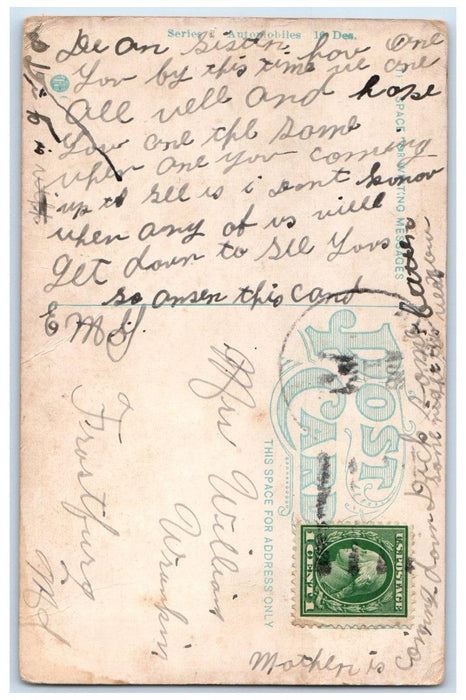 Series Automobiles 10 Des.
Dear Sister how are
You by this time we are
all well and hope
You are the same
when are you coming
up to see us i dont know
when any of us will
get down to see You
so anser this card
E M G
SPACE FOR WRITING MESSAGES
POST CARD
THIS SPACE FOR ADDRESS ONLY
Mrs William
Frostburg
Md
U.S. POSTAGE
1 CENT 1
Mother is
coming down